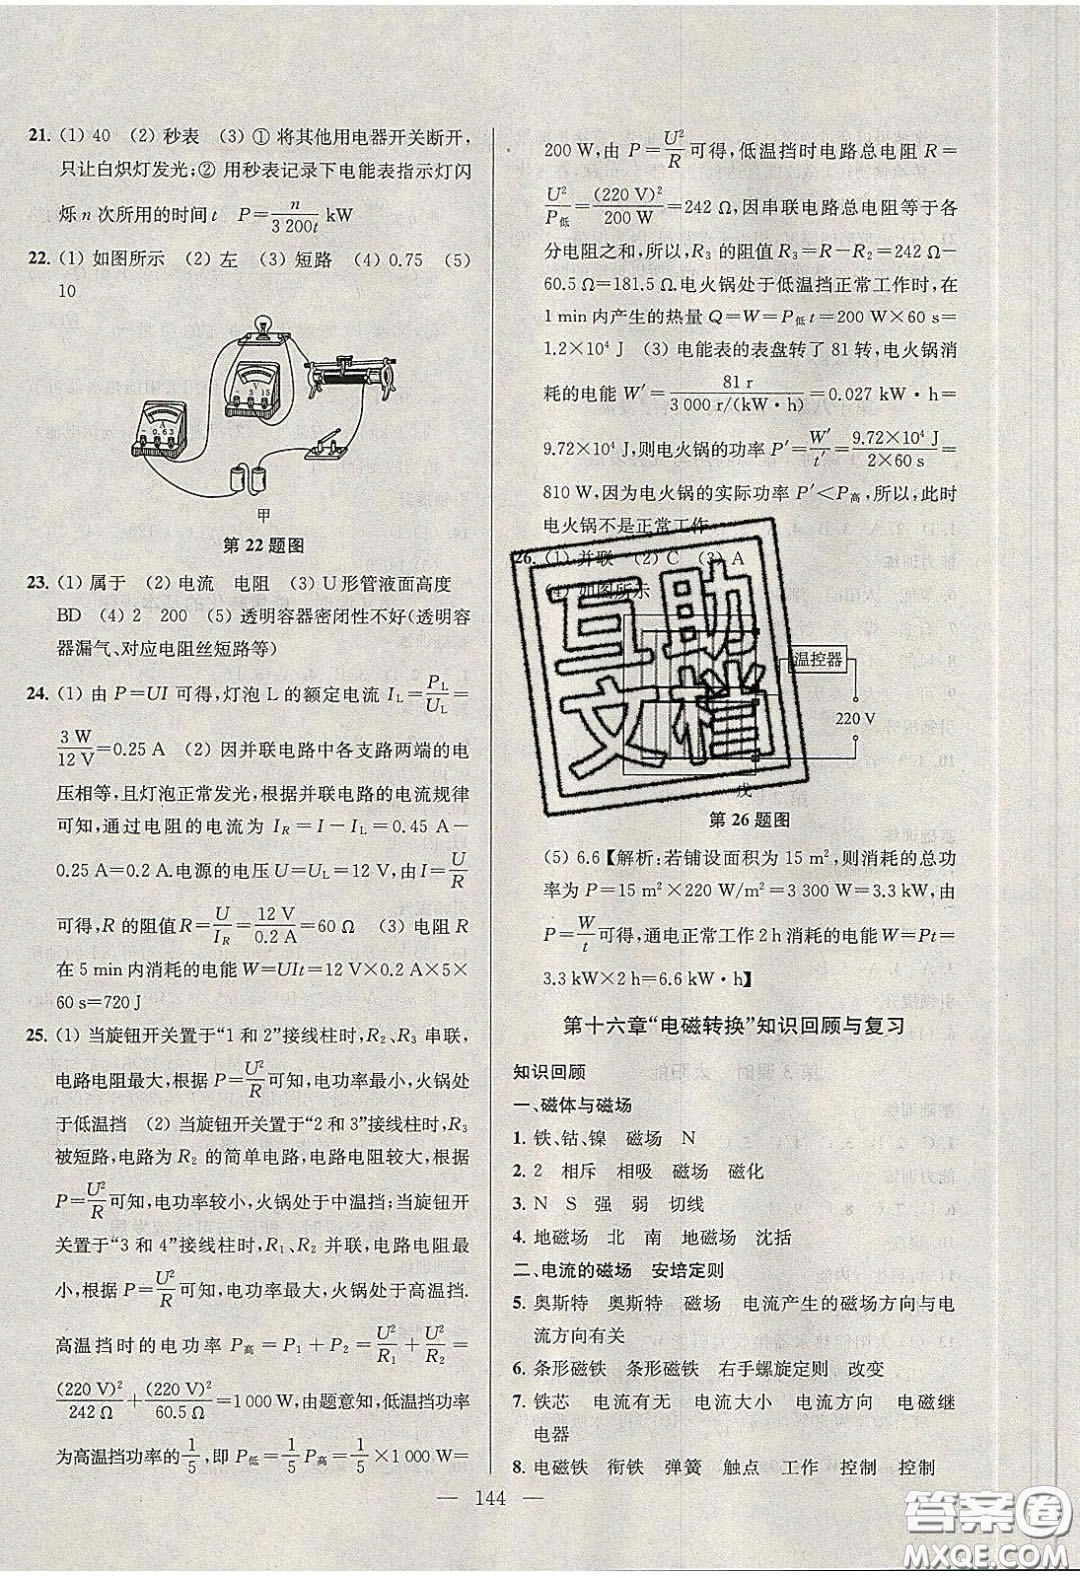 21. (1) 40 (2) 秒表 (3) ① 将其他用电器开关断开,
只让白炽灯发光;② 用秒表记录下电能表指示灯闪
烁 n 次所用的时间 t P=n/3 200t kW
22. (1) 如图所示 (2) 左 (3) 短路 (4) 0.75 (5)
10
甲
第 22 题图
23. (1) 属于 (2) 电流 电阻 (3) U 形管液面高度
BD (4) 2 200 (5) 透明容器密闭性不好(透明容
器漏气、对应电阻丝短路等)
24. (1) 由 P=UI 可得,灯泡 L 的额定电流 I_L=P_L/U_L=
3 W/12 V=0.25 A (2) 因并联电路中各支路两端的电
压相等,且灯泡正常发光,根据并联电路的电流规律
可知,通过电阻的电流为 I_R=I-I_L=0.45 A-
0.25 A=0.2 A.电源的电压 U=U_L=12 V,由 I=U/R
可得,R 的阻值 R=U/I_R=12 V/0.2 A=60 Ω (3) 电阻 R
在 5 min 内消耗的电能 W=UIt=12 V×0.2 A×5×
60 s=720 J
25. (1) 当旋钮开关置于“1 和 2”接线柱时,R₂、R₃ 串联,
电路电阻最大,根据 P=U²/R 可知,电功率最小,火锅处
于低温挡 (2) 当旋钮开关置于“2 和 3”接线柱时,R₃
被短路,电路为 R₂ 的简单电路,电路电阻较大,根据
P=U²/R 可知,电功率较小,火锅处于中温挡;当旋钮开
关置于“3 和 4”接线柱时,R₁、R₂ 并联,电路电阻最
小,根据 P=U²/R 可知,电功率最大,火锅处于高温挡.
高温挡时的电功率 P高=P₁+P₂=U²/R₁+U²/R₂=
(220 V)²/242 Ω+(220 V)²/60.5 Ω=1 000 W,由题意知,低温挡功率
为高温挡功率的1/5,即 P低=1/5 P高=1/5×1 000 W=
200 W,由 P=U²/R 可得,低温挡时电路总电阻 R=
U²/P低=(220 V)²/200 W=242 Ω,因串联电路总电阻等于各
分电阻之和,所以,R₃ 的阻值 R₃=R-R₂=242 Ω-
60.5 Ω=181.5 Ω.电火锅处于低温挡正常工作时,在
1 min 内产生的热量 Q=W=P低t=200 W×60 s=
1.2×10⁴ J (3) 电能表的表盘转了 81 转,电火锅消
耗的电能 W′=81 r/3 000 r/(kW·h)=0.027 kW·h=
9.72×10⁴ J,则电火锅的功率 P′=W′/t′=9.72×10⁴ J/2×60 s=
810 W,因为电火锅的实际功率 P′<P高,所以,此时
电火锅不是正常工作
26. (1) 并联 (2) C (3) A
(4) 如图所示
温控器
220 V
戊
第 26 题图
(5) 6.6【解析:若铺设面积为 15 m²,则消耗的总功
率为 P=15 m²×220 W/m²=3 300 W=3.3 kW,由
P=W/t 可得,通电正常工作 2 h 消耗的电能 W=Pt=
3.3 kW×2 h=6.6 kW·h】
第十六章“电磁转换”知识回顾与复习
知识回顾
一、磁体与磁场
1. 铁、钴、镍 磁场 N
2. 2 相斥 相吸 磁场 磁化
3. N S 强 弱 切线
4. 地磁场 北 南 地磁场 沈括
二、电流的磁场 安培定则
5. 奥斯特 奥斯特 磁场 电流产生的磁场方向与电
流方向有关
6. 条形磁铁 条形磁铁 右手螺旋定则 改变
7. 铁芯 电流有无 电流大小 电流方向 电磁继
电器
8. 电磁铁 衔铁 弹簧 触点 工作 控制 控制
— 144 —
互助
文档
答案圈
MXQE.COM